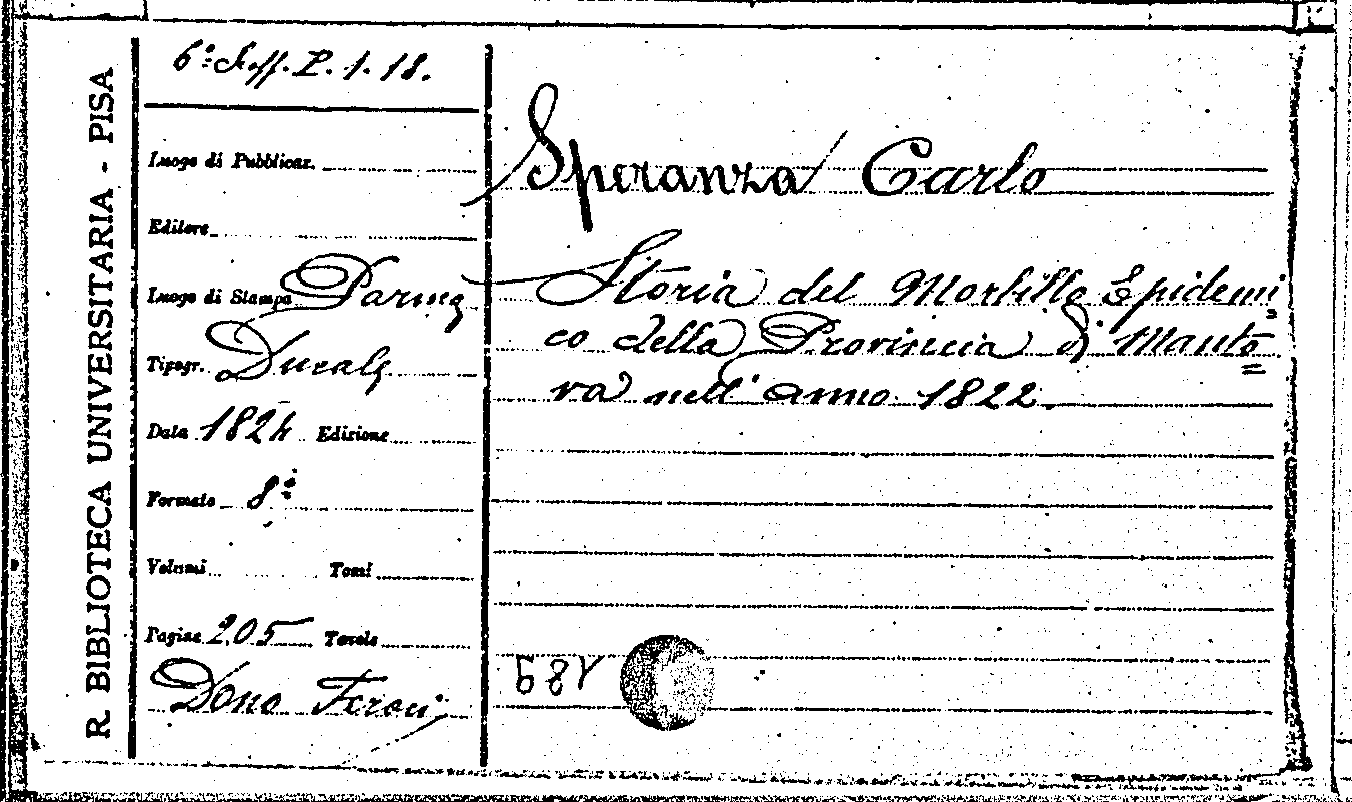 R. BIBLIOTECA UNIVERSITARIA - PISA
P. 1. 18.
Luogo di Pubblicaz.
Editore
Luogo di Stampa Parma
Tipogr. Ducale
Data 1824 Edizione
Formato 8º
Volumi Tomi
Pagine 205 Tavole
Dono Feroci
Speranza Carlo
Storia del Morbillo Epidemi
co della Provincia di Manto
va nell' anno 1822.